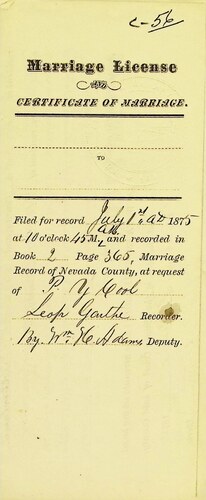 C-56
Marriage License
AND
CERTIFICATE OF MARRIAGE.
TO
Filed for record July 1st AD 1875
at 10 o'clock 45 M, AM and recorded in
Book 2 Page 365, Marriage
Record of Nevada County, at request
of P. Y Cool
Leop Garthe Recorder.
By Wm. H Adams Deputy.